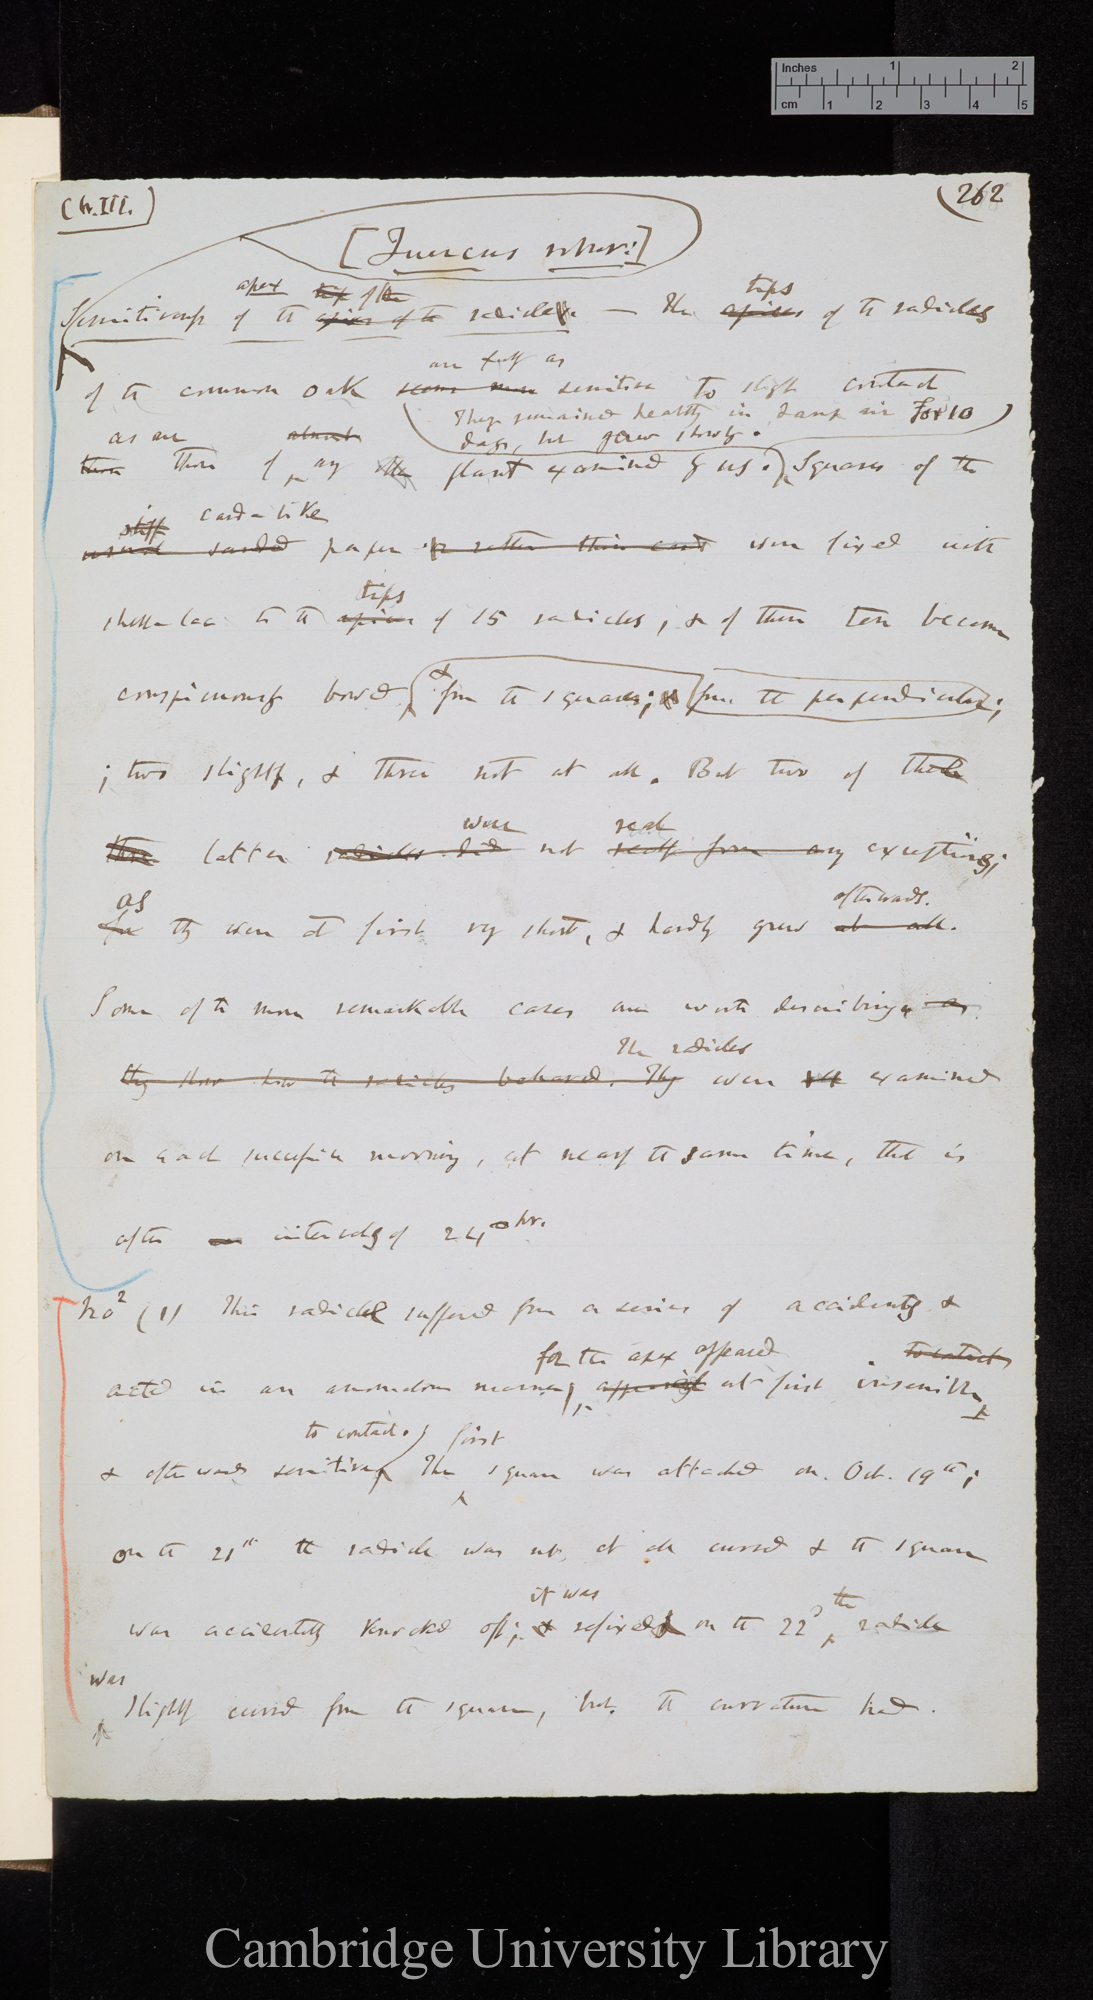 Inches 1 2
cm 1 2 3 4 5
(Ch. III.)
(262
[Quercus robur:]
apex tip of the tips
Sensitiveness of the apices of the radicle. — The apices of the radicles
are fully as
of the common oak seems more sensitive to slight contact
They remained healthy in damp air for 10
days, but grew slowly.
as are almost
than those of any other plant examined by us. Squares of the
stiff card-like
usual sanded paper or rather thin card were fixed with
tips
shellac to the apices of 15 radicles, & of these ten became
conspicuously bowed & from the squares; & from the perpendicular;
; two slightly, & three not at all. But two of the
were real
three latter radicles did not really form any exceptions;
as afterwards.
for they were at first very short, & hardly grew at all.
Some of the more remarkable cases are worth describing, as
The radicles
they show how the radicles behaved. They were examined
on each successive morning, at nearly the same time, that is
after an intervals of 24 hr.
No (1) This radicle suffered from a series of accidents &
for the apex appeared to contact
acted in an anomalous manner, appearing at first insensible
to contact. first
& afterwards sensitive The square was attached on Oct. 19th;
on the 21st the radicle was not at all curved & the square
it was the
was accidentally knocked off; & refixed on the 22d, radicle
was
slightly curved from the square, but the curvature had
Cambridge University Library